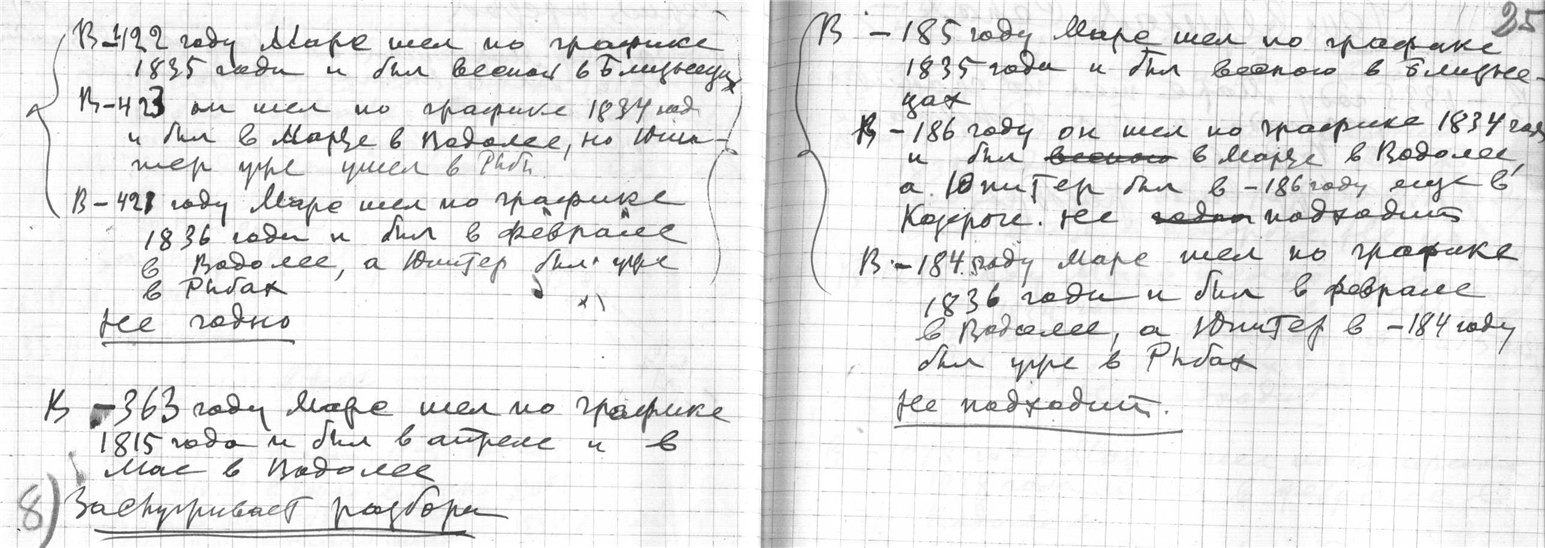 В -422 году Марс шел по графике
1835 года и был весной в Близнецах
В -423 он шел по графике 1834 год
и был в Марте в Водолее, но Юпи-
тер уже ушел в Рыбы
В -421 году Марс шел по графике
1836 года и был в феврале
в Водолее, а Юпитер был уже
в Рыбах
x)
Не годно
В -363 году Марс шел по графике
1815 года и был в апреле и в
Мае в Водолее
8) Заслуживает разбора
25
В -185 году Марс шел по графике
1835 года и был весною в Близне-
цах
В -186 году он шел по графике 1834 года
и был весною в Марте в Водолее,
а Юпитер был в -186 году еще в
Козероге. Не годно подходит
В -184 году Марс шел по графике
1836 года и был в феврале
в Водолее, а Юпитер в -184 году
был уже в Рыбах
Не подходит.